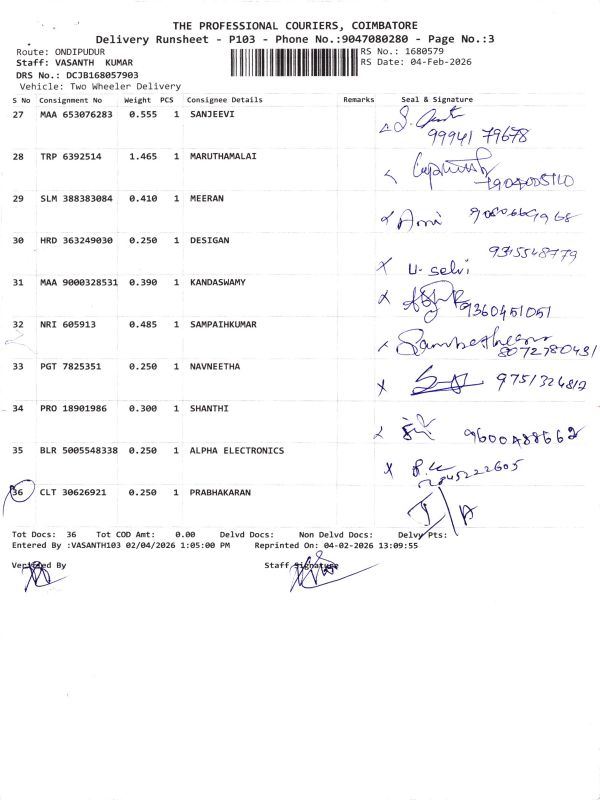 THE PROFESSIONAL COURIERS, COIMBATORE
Delivery Runsheet - P103 - Phone No.:9047080280 - Page No.:3
Route: ONDIPUDUR
RS No.: 1680579
Staff: VASANTH KUMAR
RS Date: 04-Feb-2026
DRS No.: DCJB168057903
Vehicle: Two Wheeler Delivery
S No Consignment No Weight PCS Consignee Details Remarks Seal & Signature
27 MAA 653076283 0.555 1 SANJEEVI
99941 79678
28 TRP 6392514 1.465 1 MARUTHAMALAI
29 SLM 388383084 0.410 1 MEERAN
30 HRD 363249030 0.250 1 DESIGAN 9315548779
x U. selvi
31 MAA 9000328531 0.390 1 KANDASWAMY
x 9360451051
32 NRI 605913 0.485 1 SAMPAIHKUMAR
8072780431
33 PGT 7825351 0.250 1 NAVNEETHA
x 9751324812
34 PRO 18901986 0.300 1 SHANTHI
9600488662
35 BLR 5005548338 0.250 1 ALPHA ELECTRONICS
x
36 CLT 30626921 0.250 1 PRABHAKARAN
Tot Docs: 36 Tot COD Amt: 0.00 Delvd Docs: Non Delvd Docs: Delvy Pts:
Entered By :VASANTH103 02/04/2026 1:05:00 PM Reprinted On: 04-02-2026 13:09:55
Verified By Staff Signature